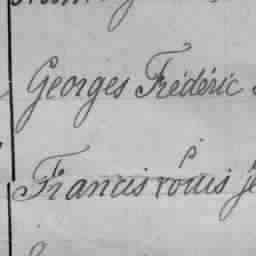 Georges Frédéric
Francis Louis